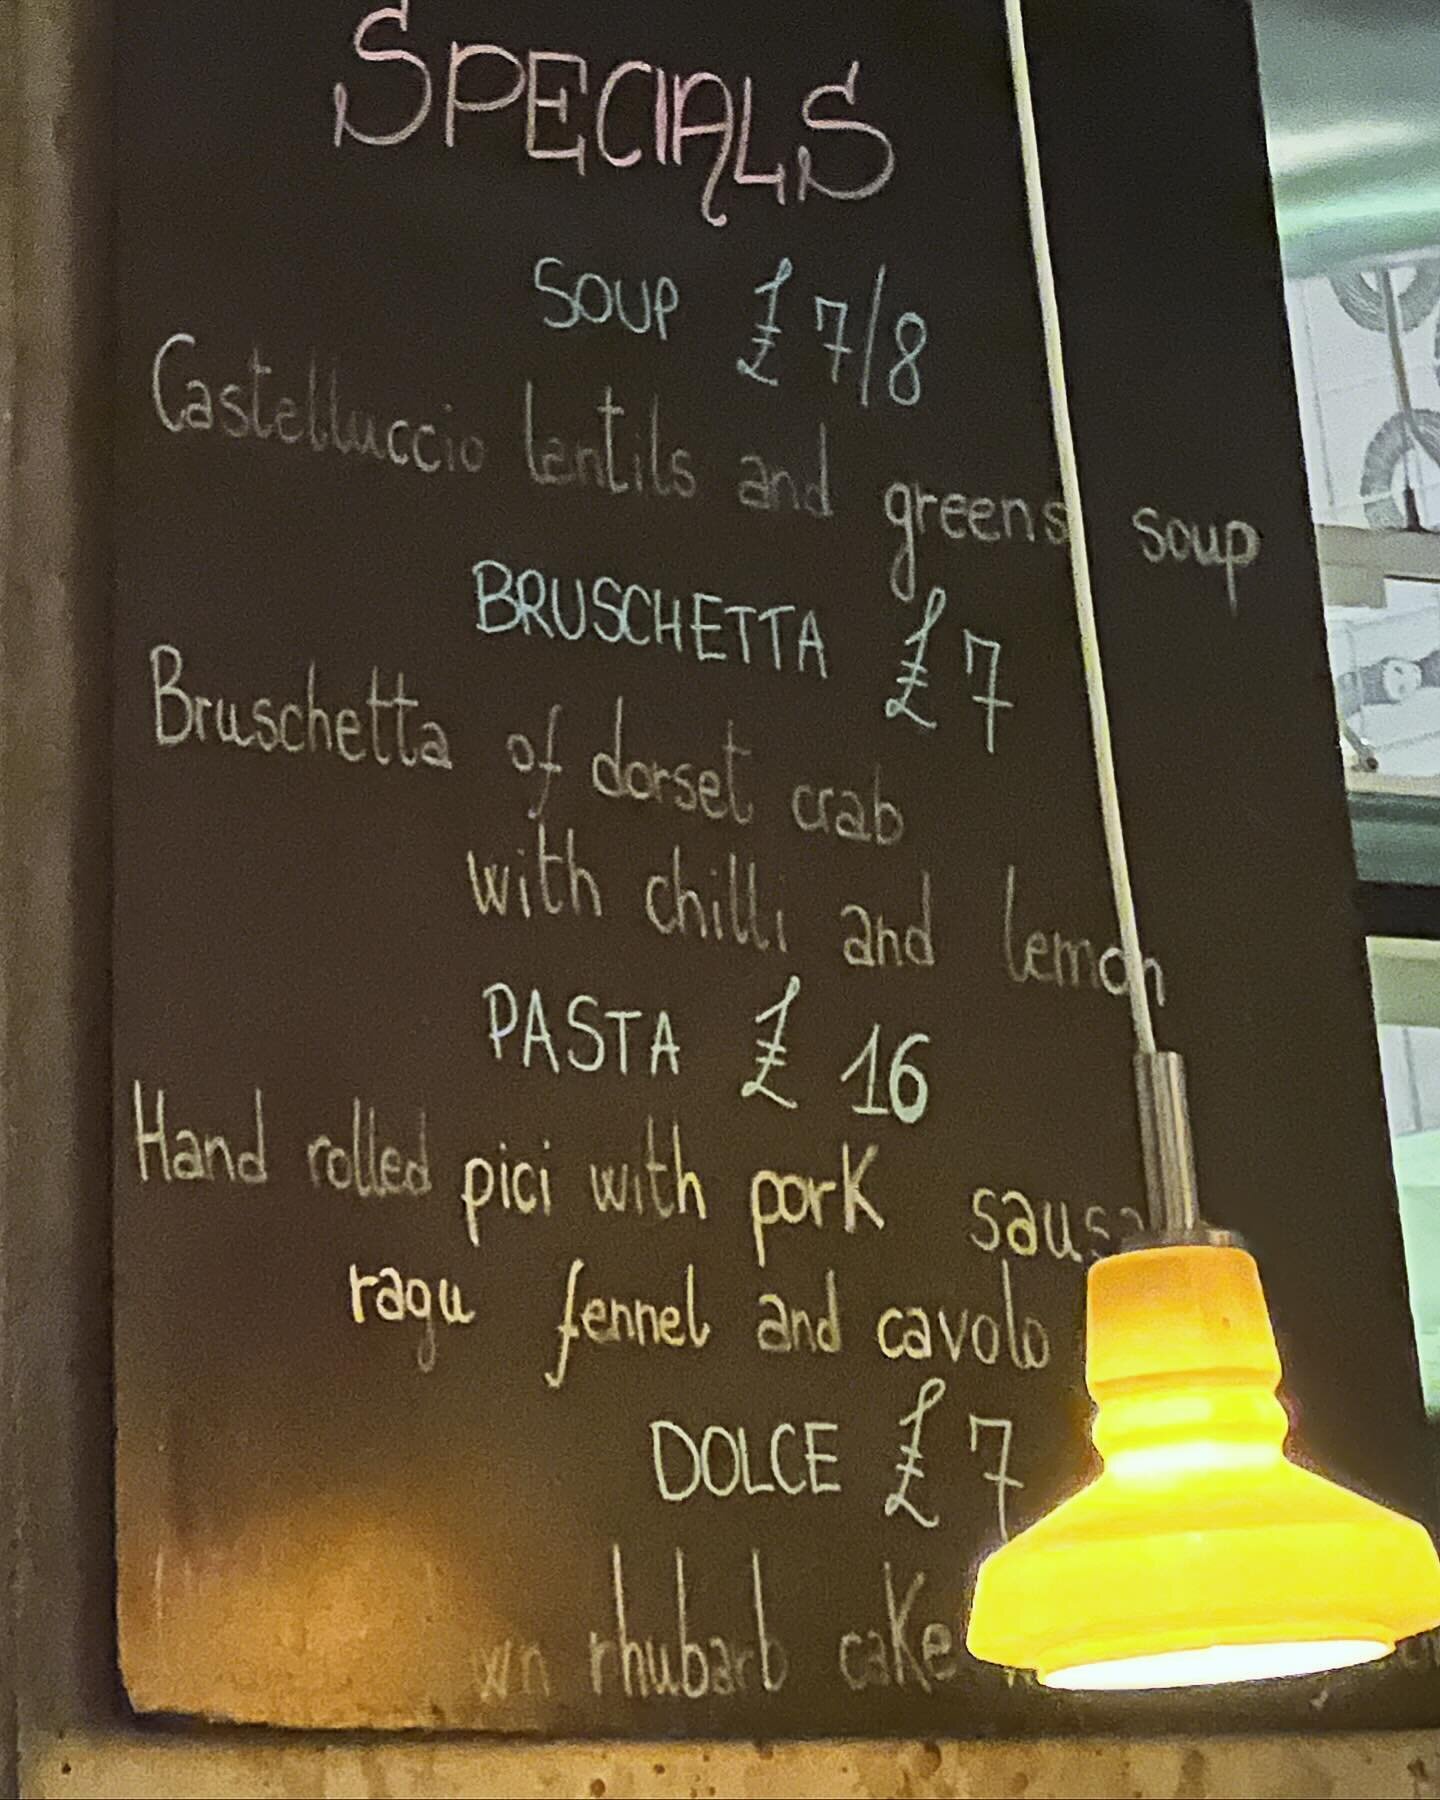 SPECIALS
SOUP £7/8
Castelluccio lentils and greens soup
BRUSCHETTA £7
Bruschetta of dorset crab
with chilli and lemon
PASTA £16
Hand rolled pici with pork
ragu fennel and cavolo
DOLCE £7
rhubarb cake